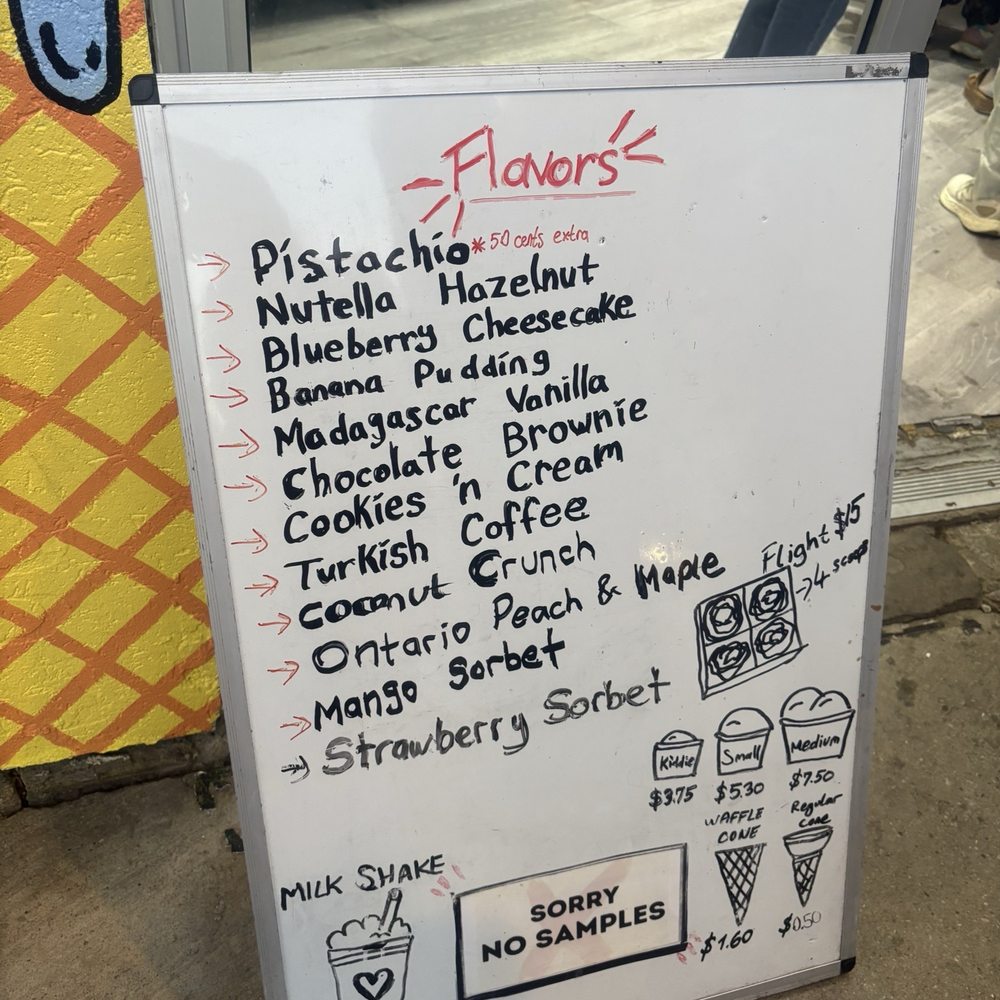 Flavors
Pistachio * 50 cents extra
Nutella Hazelnut
Blueberry Cheesecake
Banana Pudding
Madagascar Vanilla
Chocolate Brownie
Cookies 'n Cream
Turkish Coffee
Coconut Crunch
Ontario Peach & Maple
Mango Sorbet
Strawberry Sorbet
Flight $15
4 scoops
Kiddie
Small
Medium
$3.75
$5.30
$7.50
WAFFLE
CONE
Regular
cone
$1.60
$0.50
MILK SHAKE
SORRY
NO SAMPLES